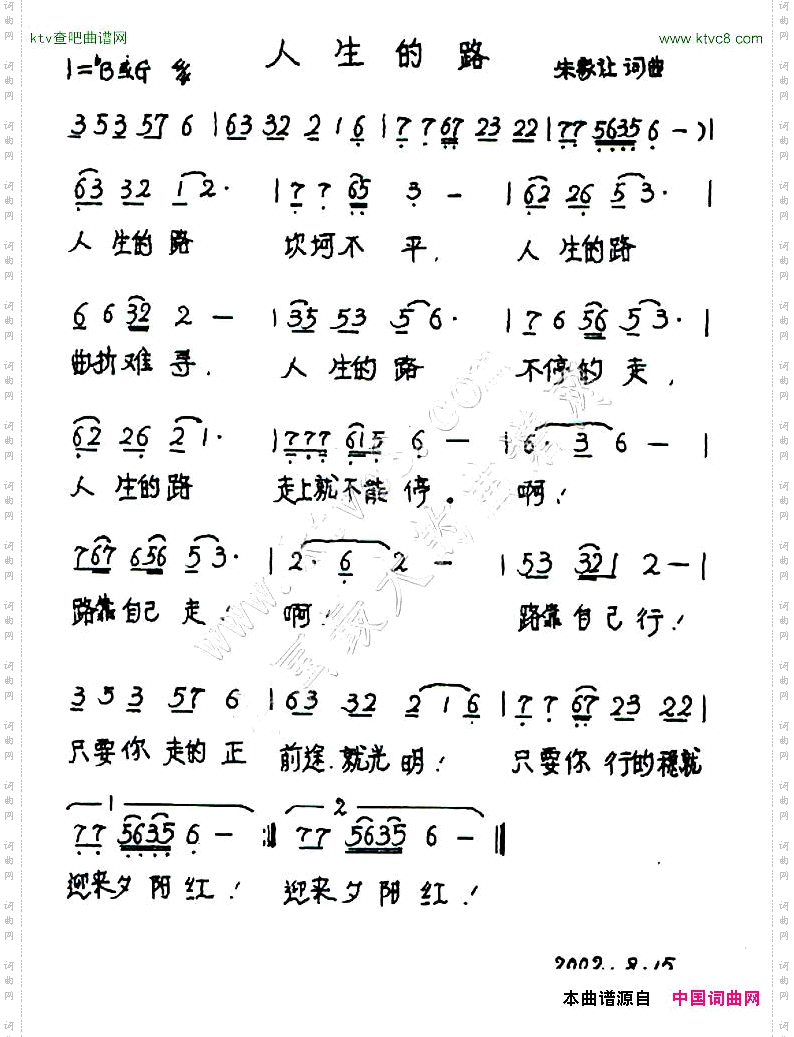 ktv查吧曲谱网 www.ktvc8.com
人生的路
1=♭B或G 朱家让 词曲
3 5 3 5 7 6 | 6 3 3 2 2 1 6 | 7 7 6 7 2 3 2 2 | 7 7 5 6 3 5 6 - ) |
6 3 3 2 1 2 · | 7 7 6 5 3 - | 6 2 2 6 5 3 · |
人生的路 坎坷不平, 人生的路
6 6 3 2 2 - | 3 5 5 3 5 6 · | 7 6 5 6 5 3 · |
曲折难寻. 人生的路 不停的走,
6 2 2 6 2 1 · | 7 7 7 6 1 5 6 - | 6 · 3 6 - |
人生的路 走上就不能停。 啊!
7 6 7 6 5 6 5 3 · | 2 · 6 2 - | 5 3 3 2 1 2 - |
路靠自己走! 啊! 路靠自己行!
3 5 3 5 7 6 | 6 3 3 2 2 1 6 | 7 7 6 7 2 3 2 2 |
只要你走的正 前途.就光明! 只要你行的稳就
1 2
7 7 5 6 3 5 6 - :‖ 7 7 5 6 3 5 6 - ‖
迎来夕阳红! 迎来夕阳红!
2002.8.15
本曲谱源自 中国词曲网